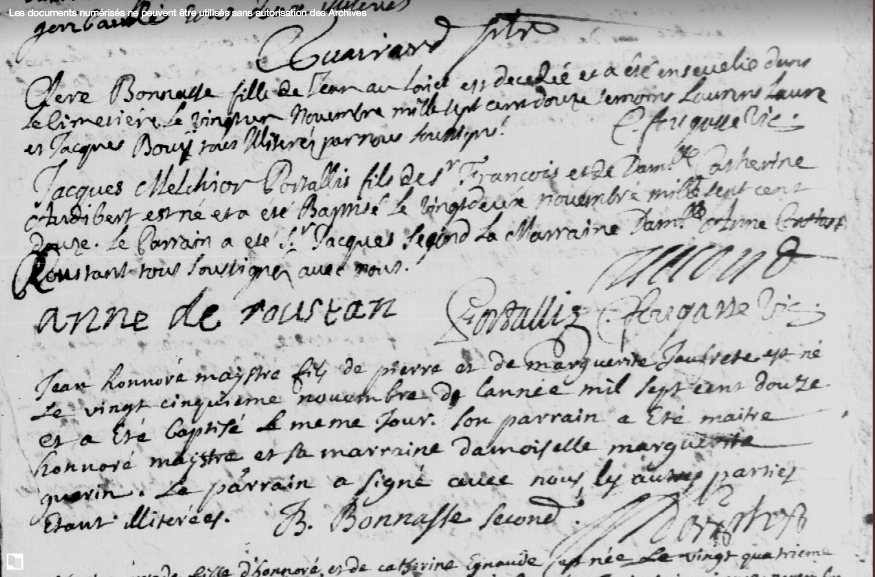 Les documents numérisés ne peuvent être utilisés sans autorisation des Archives
Bonnasse fille de Jean au loict est decedée et a été ensevelie dans
le Cimetiere le vingt un Novembre mille sept cent douze temoins Laurens Laure
et Jacques Bouis tous illiterés par nous soussigné.
C. ffregasse Vic.
Jacques Melchior Portallis fils de sr. François et de Damlle Catherine
Audibert est né et a été Baptisé le vingt deux novembre mille sept cent
douze. Le Parrain a été Sr. Jacques Segond La Marraine Damlle Anne
Roustant tous soussignés avec nous.
Segond
anne de roustan
Portallis
C. ffregasse Vic.
Jean honnoré maystre fils de pierre et de marguerite Jaufrete est né
le vingt cinquieme novembre de l'année mil sept cent douze
et a été baptisé le meme Jour. son parrain a été maitre
honnoré maystre et sa marraine damoiselle marguerite
guerin. Le parrain a signé avec nous, les autres parties
etant illiterées.
B. Bonnasse second.
fille d'honnoré, et de catherine Eynaude, est née le vingt quatrieme